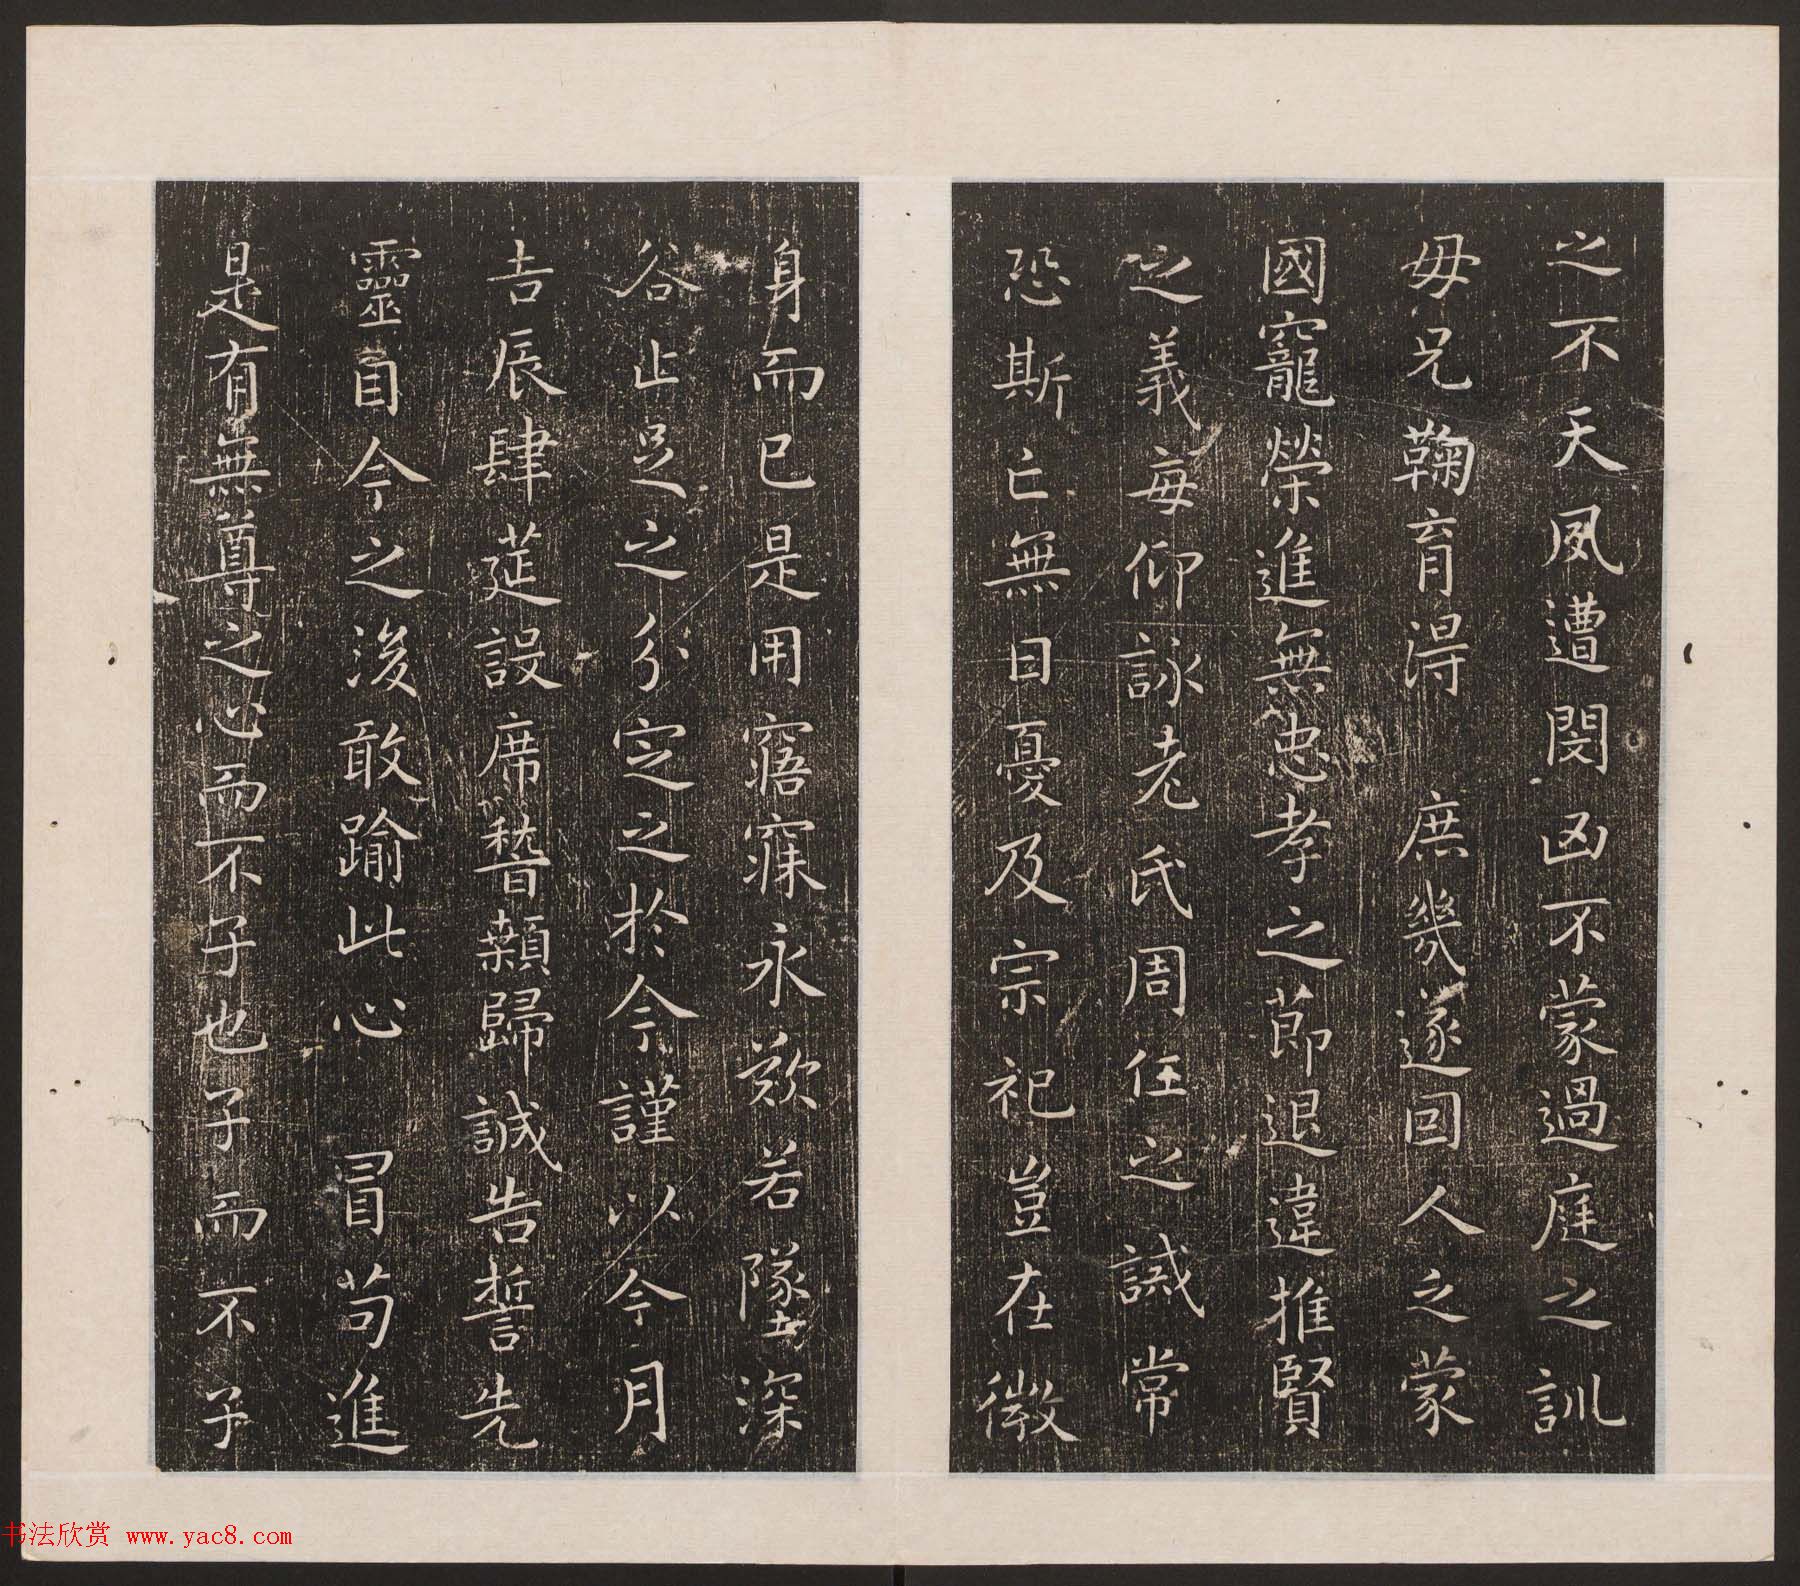 之不天夙遭閔凶不蒙過庭之訓
母兄鞠育得 庶幾遂因人之蒙
國寵榮進無忠孝之節退違推賢
之義每仰詠老氏周任之誡常
恐斯亡無日憂及宗祀豈在微
身而已是用寤寐永歎若墜深
谷止足之分定之於今謹以今月
吉辰肆莚設席稽顙歸誠告誓先
靈自今之後敢踰此心 冒苟進
是有無尊之心而不子也子而不子
书法欣赏 www.yac8.com